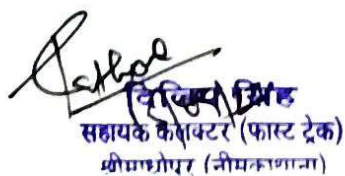 सिंह
सहायक कलक्टर (फास्ट ट्रेक)
श्रीमाधोपुर (नीमकाथाना)